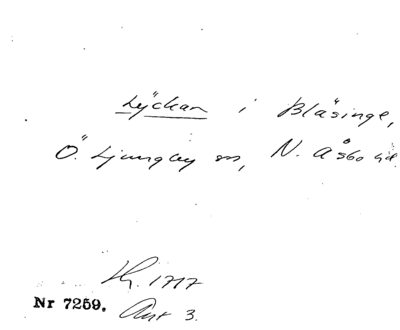 Lyckan i Blåsinge,
Ö. Ljungby sn, N. Åsbo hd
1717
Nr 7259. Art 3.